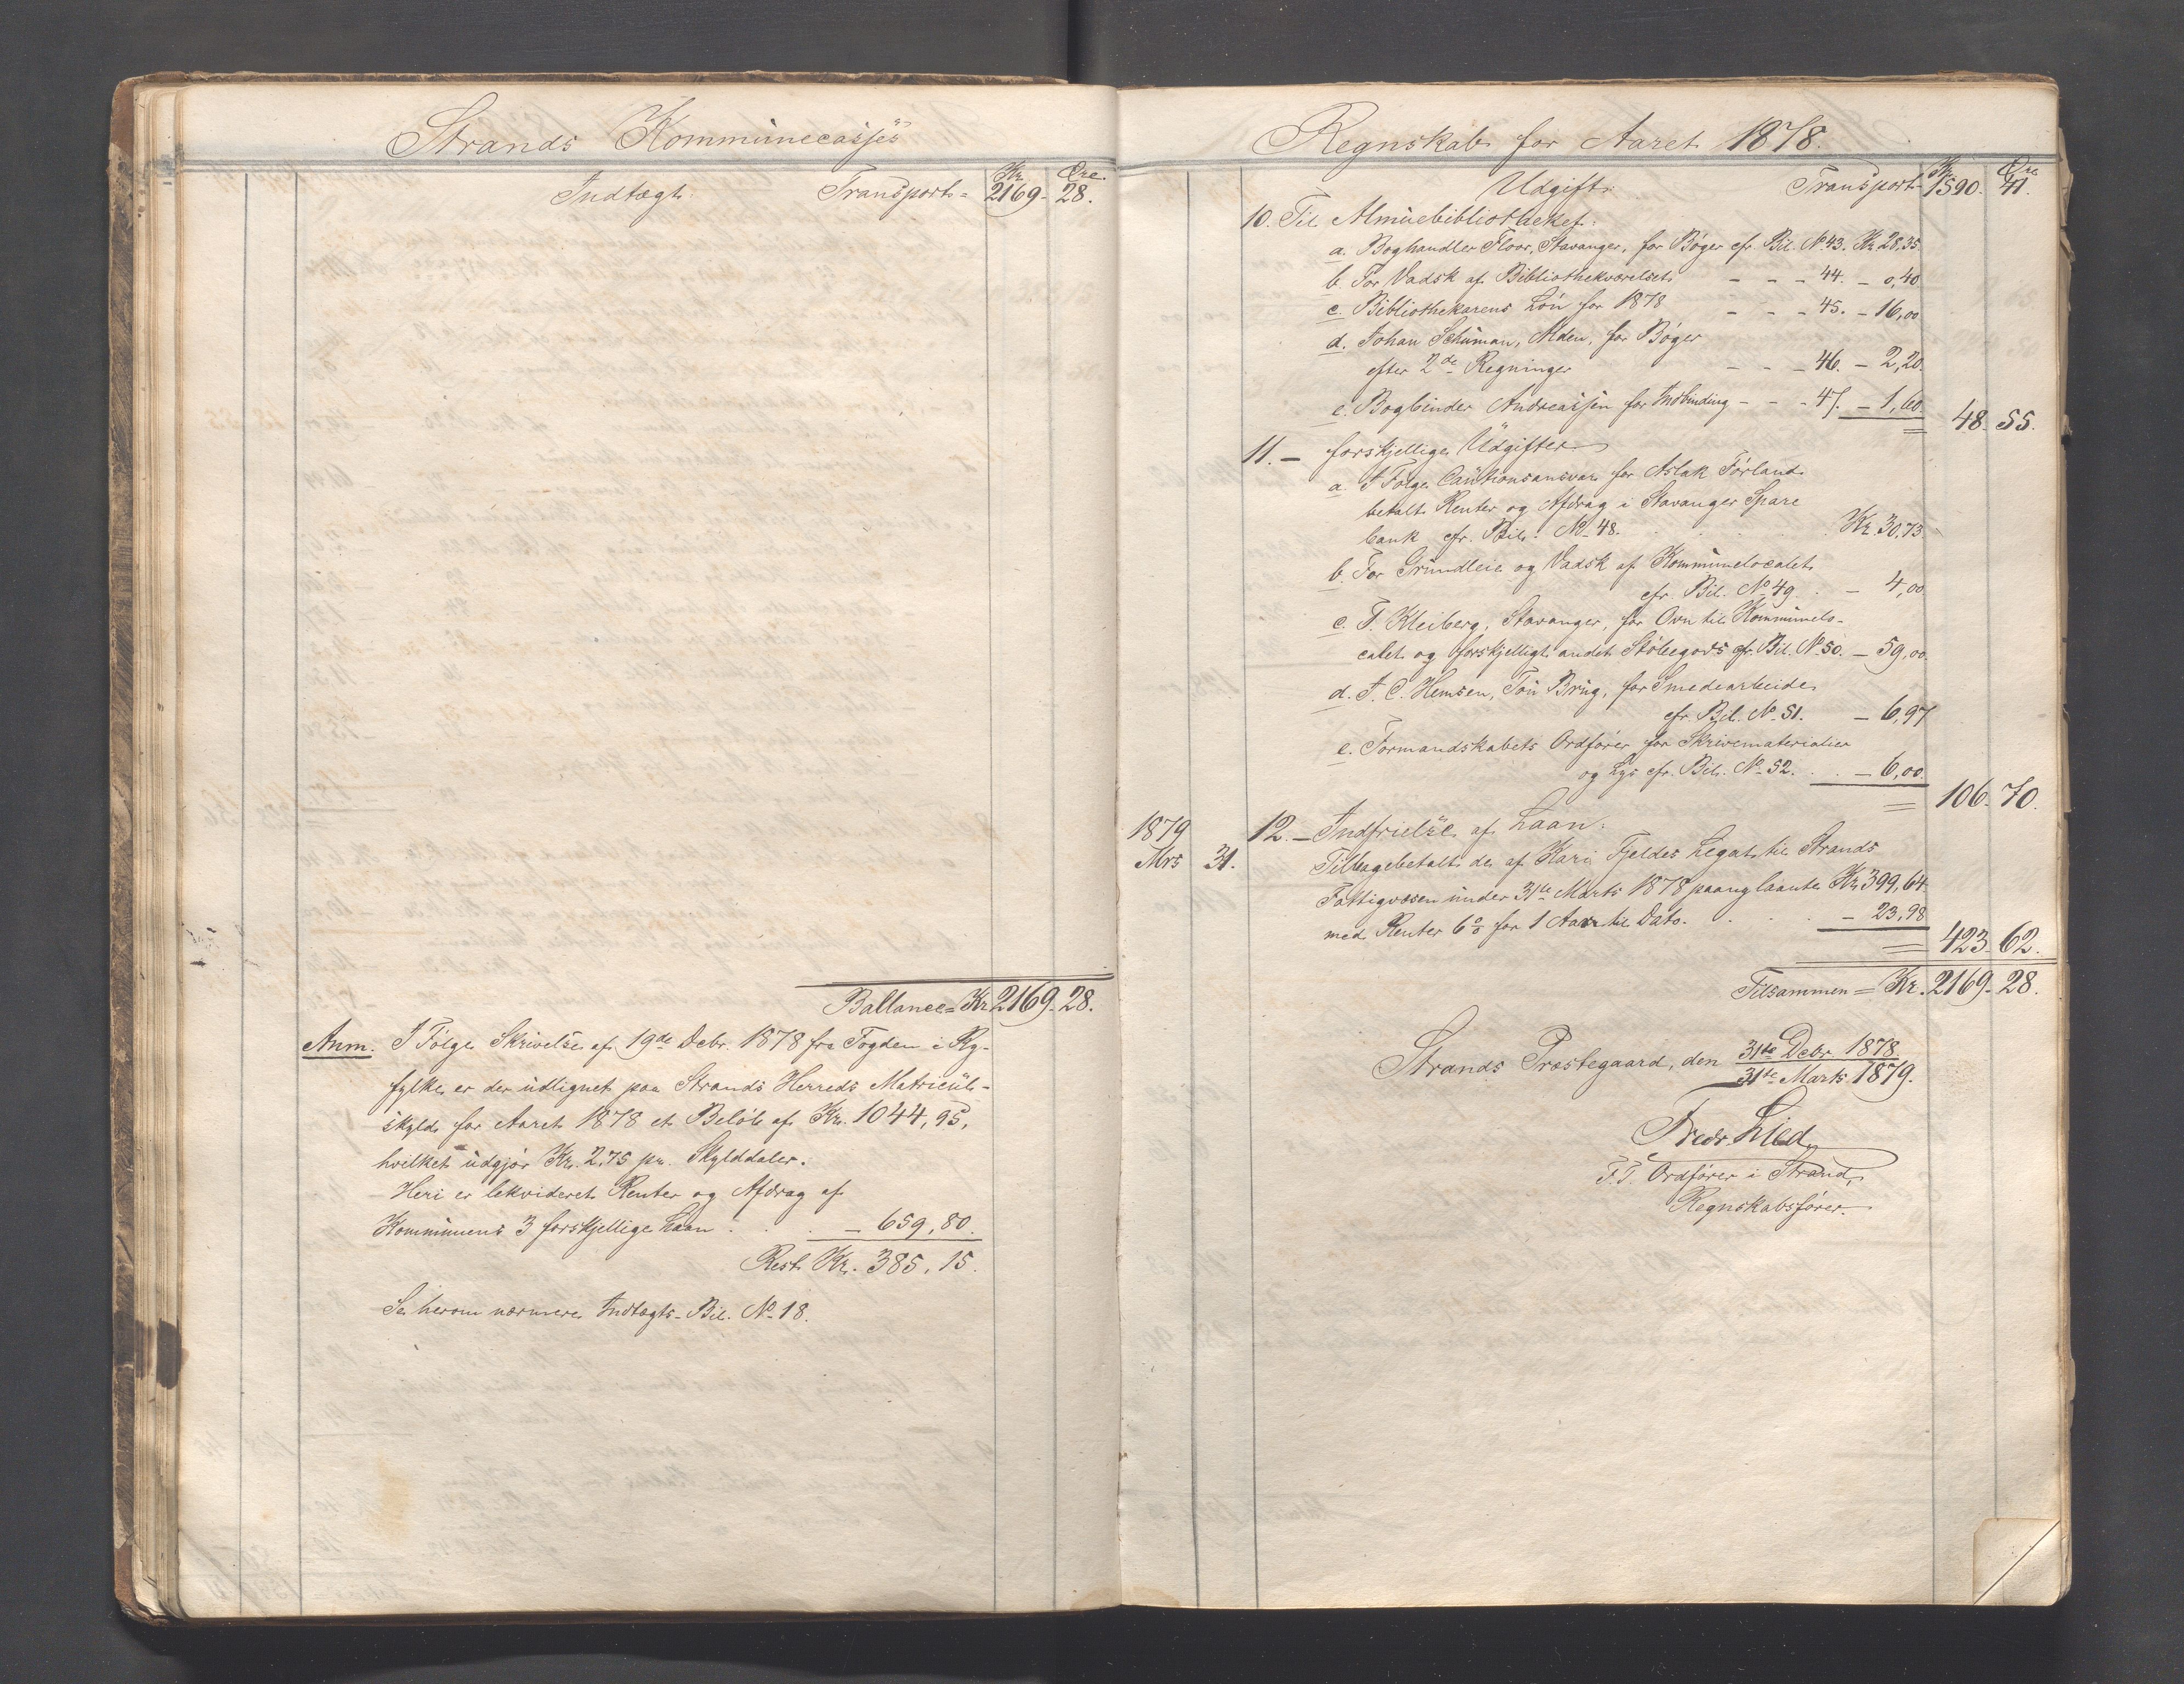 Strands Kommunecasses
Kr. Øre.
Indtægt. Transport = 2169 - 28.
Ballance = Kr. 2169 - 28.
Anm. I Følge Skrivelse af 19de Debr. 1878 fra Fogden i Ry-
fylke er der udlignet paa Strands Herreds Matricül-
skyld for Aaret 1878 et Beløb af Kr. 1044,95,
hvilket udgjør Kr. 2,75 pr. Skylddaler.
Heri er lekvideret Renter og Afdrag af
Kommunens 3 forskjellige Laan . . . — 659,80.
Rest Kr. 385,15.
Se herom nærmere Indtægts-Bil. No 18.
Regnskab for Aaret 1878.
Kr. Øre
Udgift. Transport = 1590. 41.
10. Til Almuebibliotheket:
a. Boghandler Floor, Stavanger, for Bøger cfr. Bil. No 43. Kr. 28,35.
b. For Vadsk af Bibliothekværelset - - - 44. - 0,40
c. Bibliothekarens Løn for 1878 - - - 45. - 16,00
d. Johan Schuman, Alden, for Bøger
efter 2de Regninger - - - 46. - 2,20.
e. Bogbinder Andreassen for Indbinding - - - 47. - 1,60.
= 48. 55.
11. — forskjellige Udgifter
a. I Følge Cautionsansvar for Aslak Førland
betalt Renter og Afdrag i Stavanger Spare
bank cfr. Bil. No 48. . . . . Kr. 30,73
b. For Grundleie og Vadsk af Kommunelocalet
cfr. Bil. No 49. . — 4,00
c. T. Kleiberg, Stavanger, for Ovn til Kommunelo-
calet og forskjelligt andet Støbegods cfr. Bil. No 50. — 59,00.
d. J. C. Hemsen, Tou Brug, for Smedearbeide
cfr. Bil. No 51. — 6,97
e. Formandskabets Ordfører for Skrivematerialier
og Lys cfr. Bil. No 52. . . — 6,00.
= 106. 70.
1879
Mrs 31.
12. — Indfrielse af Laan:
Tilbagebetalt de af Kari Fjeldes Legat til Strands
Fattigvæsen under 31te Marts 1878 paany laante Kr. 399,64
med Renter 6% for 1 Aar til Dato. . . . — 23,98
= 423. 62.
Tilsammen = Kr. 2169. 28.
Strands Præstegaard, den 31te Debr. 1878.
31te Marts 1879.
Fredr. Lied
F.T. Ordfører i Strand,
Regnskabsfører.